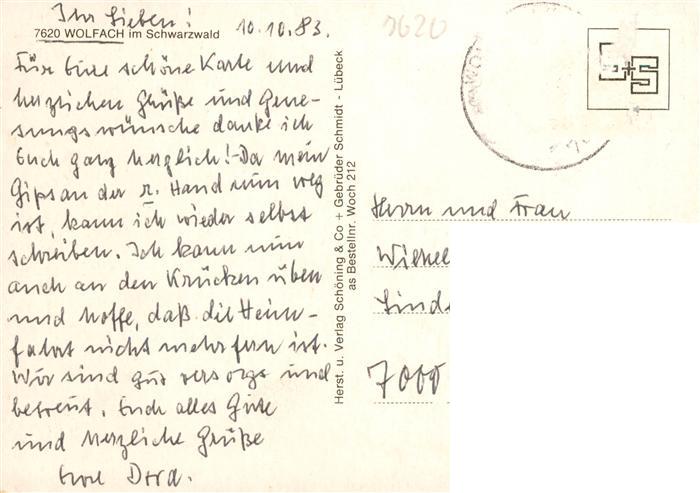 Ihr Lieben!
7620 WOLFACH im Schwarzwald
10.10.83.
Für Eure schöne Karte und
herzlichen Grüße und Gene-
sungswünsche danke ich
Euch ganz herzlich! - Da mein
Gips an der r. Hand nun weg
ist, kann ich wieder selbst
schreiben. Ich kann nun
auch an den Krücken üben
und hoffe, daß die Heim-
fahrt nicht mehr fern ist.
Wir sind gut versorgt und
betreut. Euch alles Gute
und herzliche Grüße
Eure Dora.
Herst. u. Verlag Schöning & Co + Gebrüder Schmidt - Lübeck
as Bestellnr. Woch 212
7620
S+S
Herrn und Frau
Linde
7000